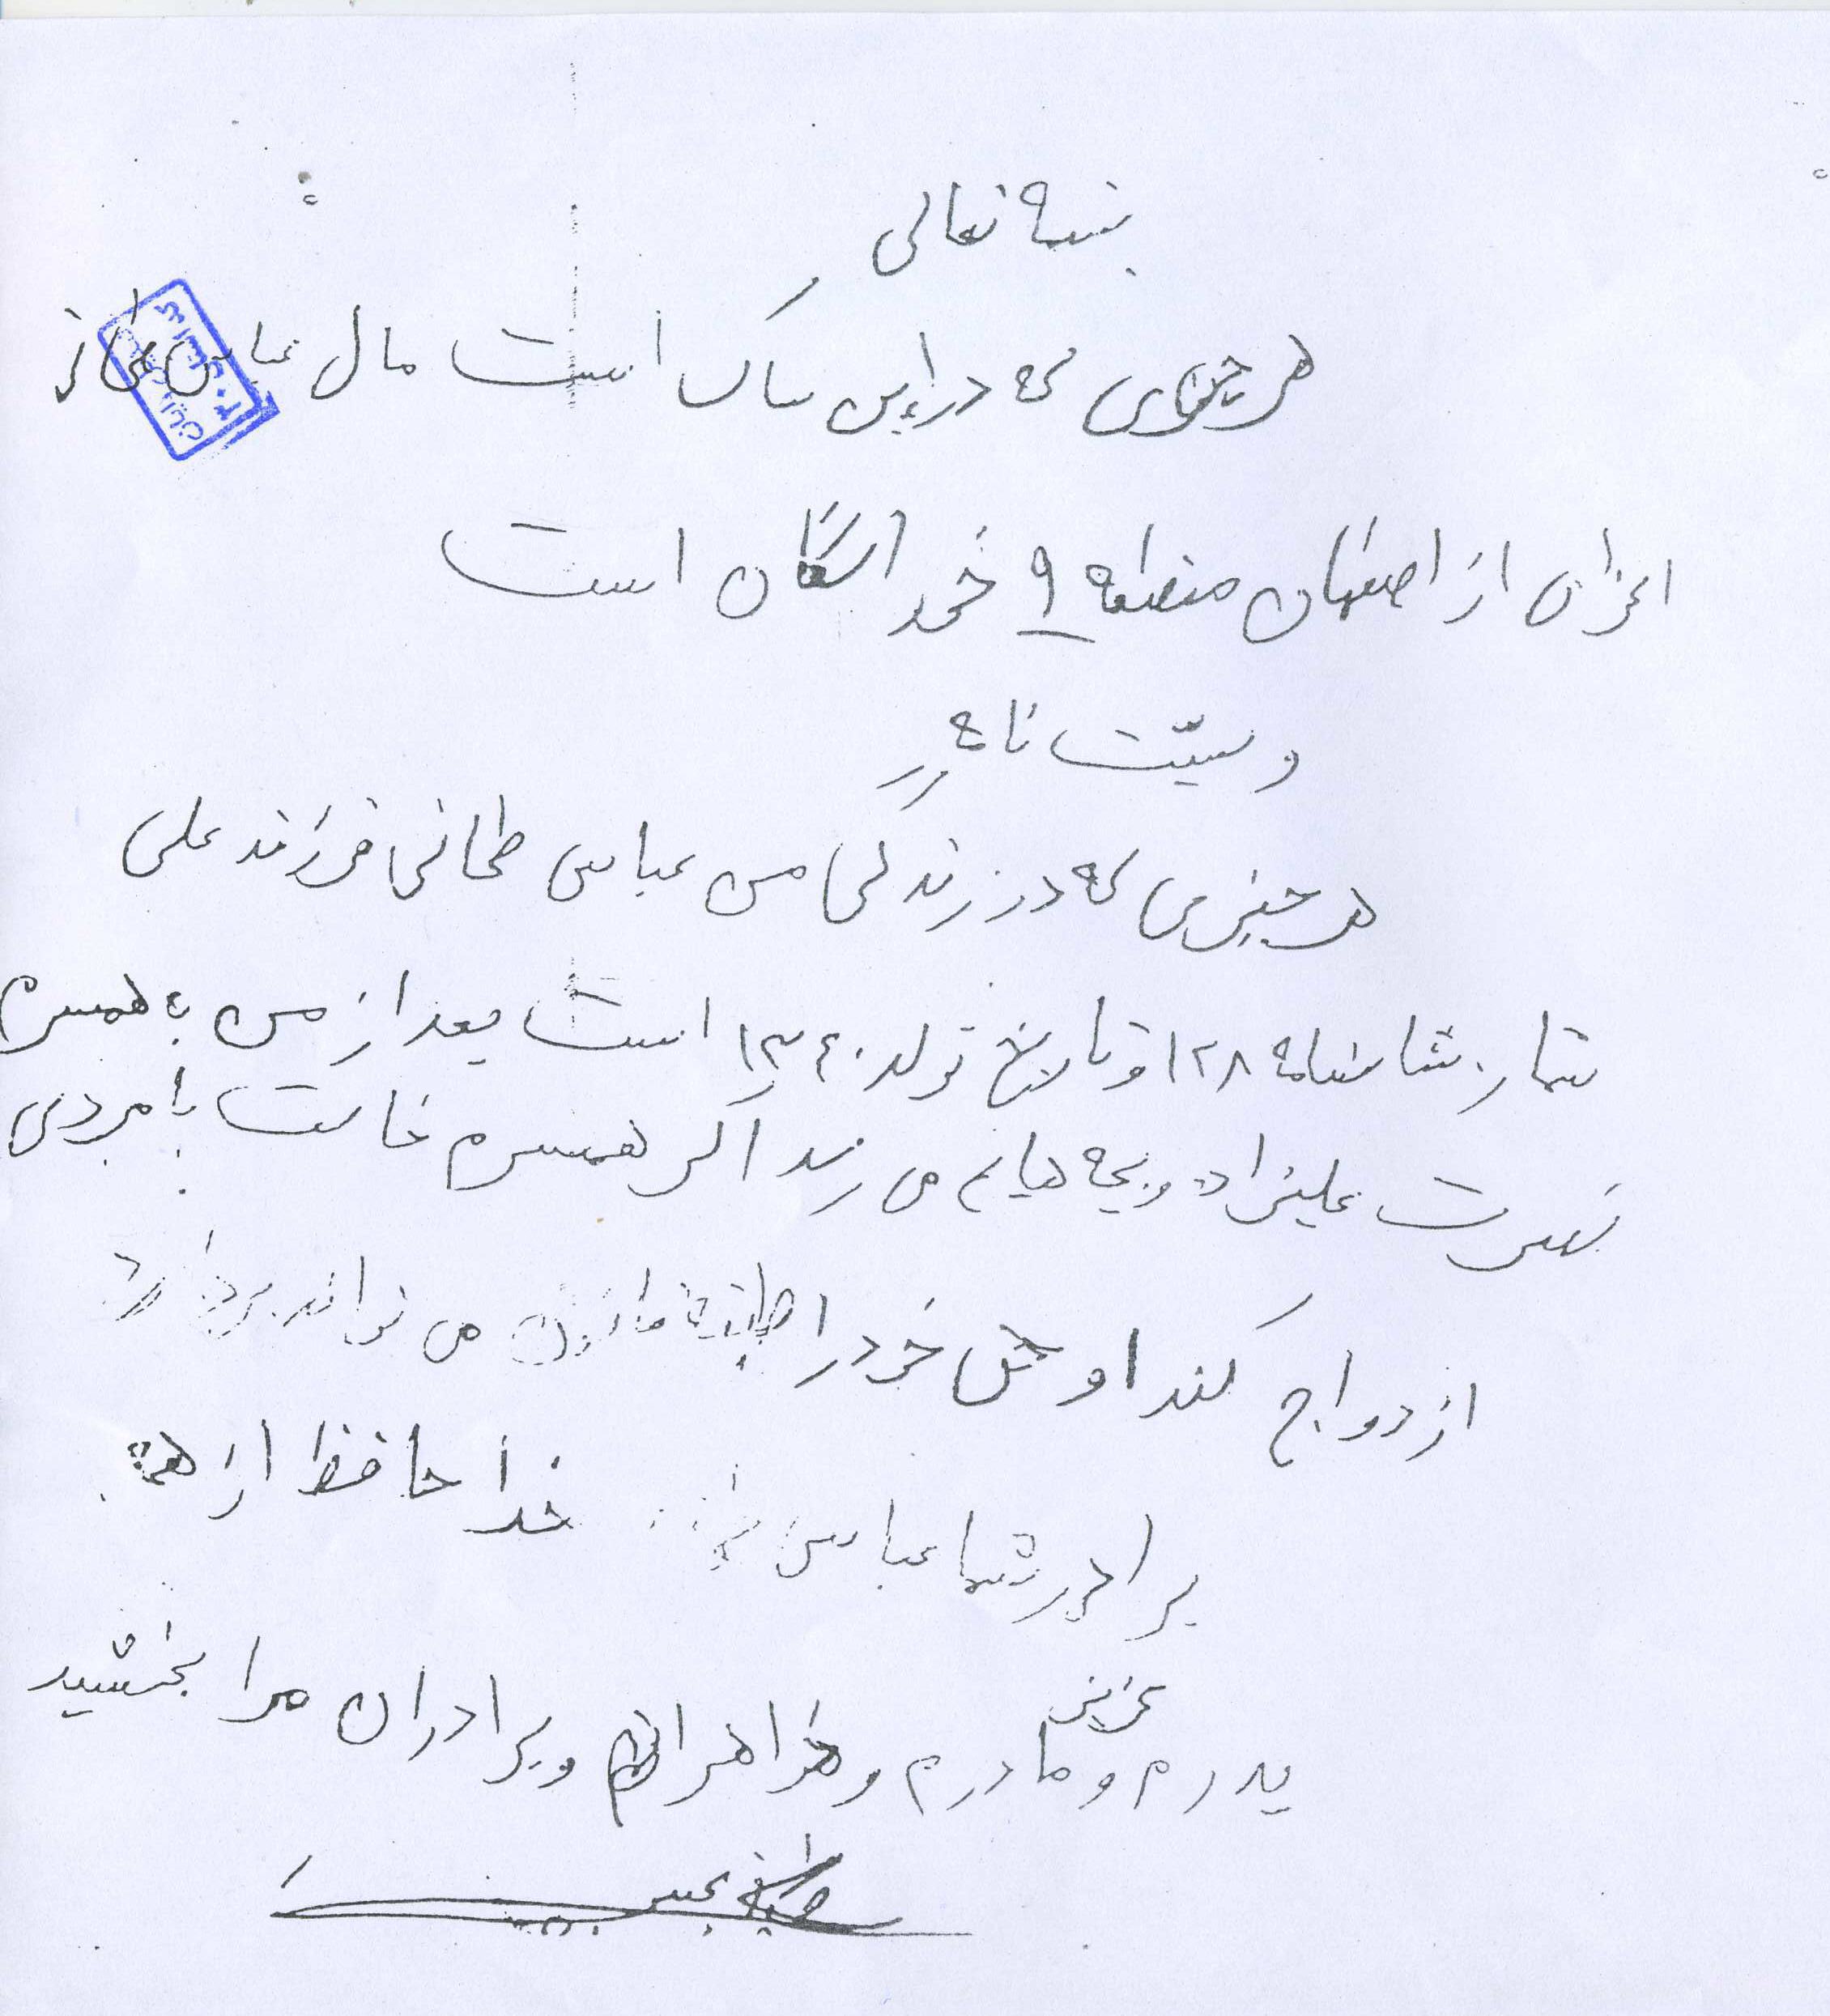 بسمه تعالی
هر چیزی که در این ساک است مال عباس
اعزای از اصفهان منطقه ۹ خوراسگان است
وسیّت نامه
هر چیزی که در زندگی من عباس طحانی فرزند علی
شمار شناسنامه ۱۲۸ و تاریخ تولد ۱۳۴۰ است بعد از من به همسرم
نصرت علیزاده و بچه هایم می رسد اگر همسرم خاست با مردی
ازدواج کند او حق خود را طبق قانون می تواند بردارد
برادر شما عباس خدا حافظ از همه
عزیز
پدرم و مادرم و خواهرانم و برادران مرا بخشید